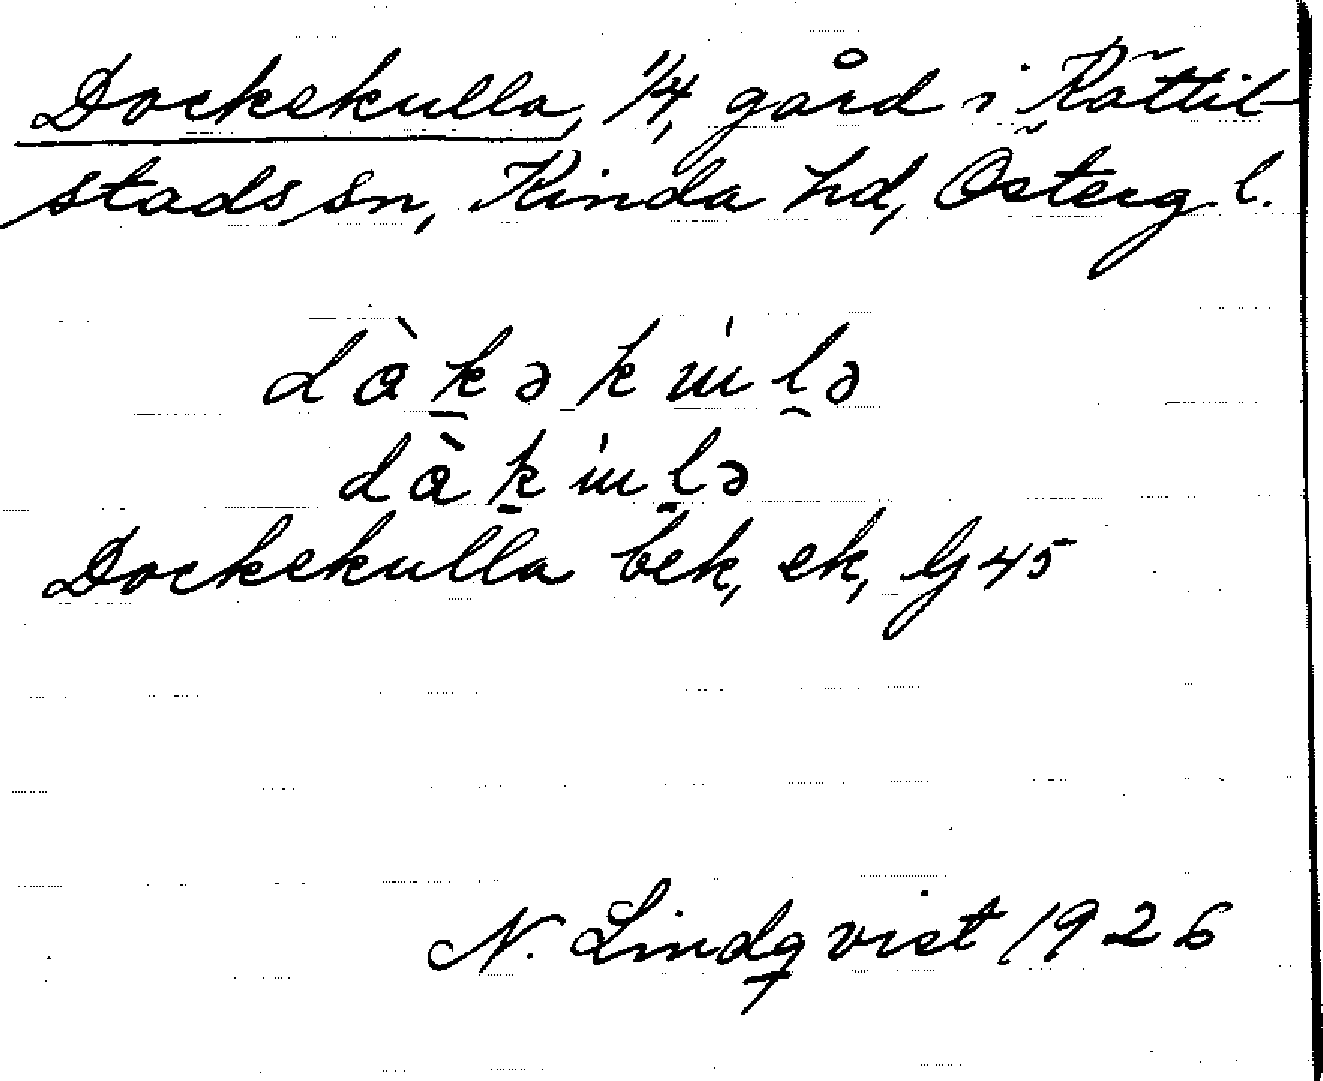 Dockekulla, 1/4, gård i Kättil-
stads sn, Kinda hd, Österg. l.
dàkəkɯ́lə
dàkɯ́lə
Dockekulla bek, ek, Gj 45
N. Lindqvist 1926